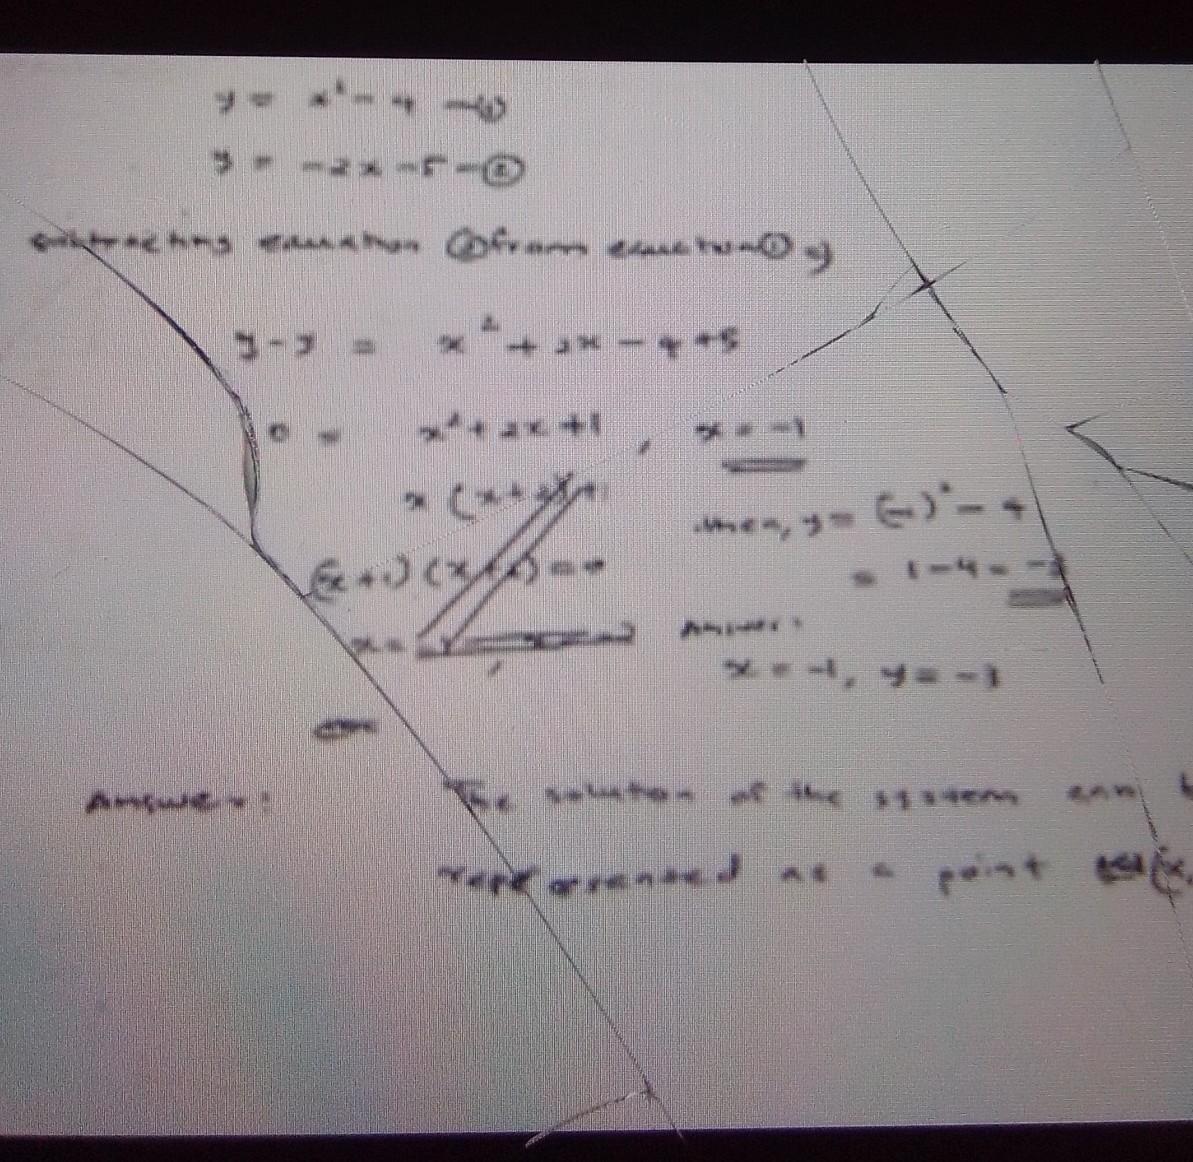 y = x² - 4 - ①
y = -2x - 5 - ②
subtracting equation ② from equation ① y
y - y = x² + 2x - 4 + 5
0 = x² + 2x + 1 , x = -1
x (x +
then, y = (-1)² - 4
(x + 1) (x = 0
= 1 - 4 = -3
x =
Answer:
x = -1, y = -3
Answer: The solution of the system can
represented as a point (x,